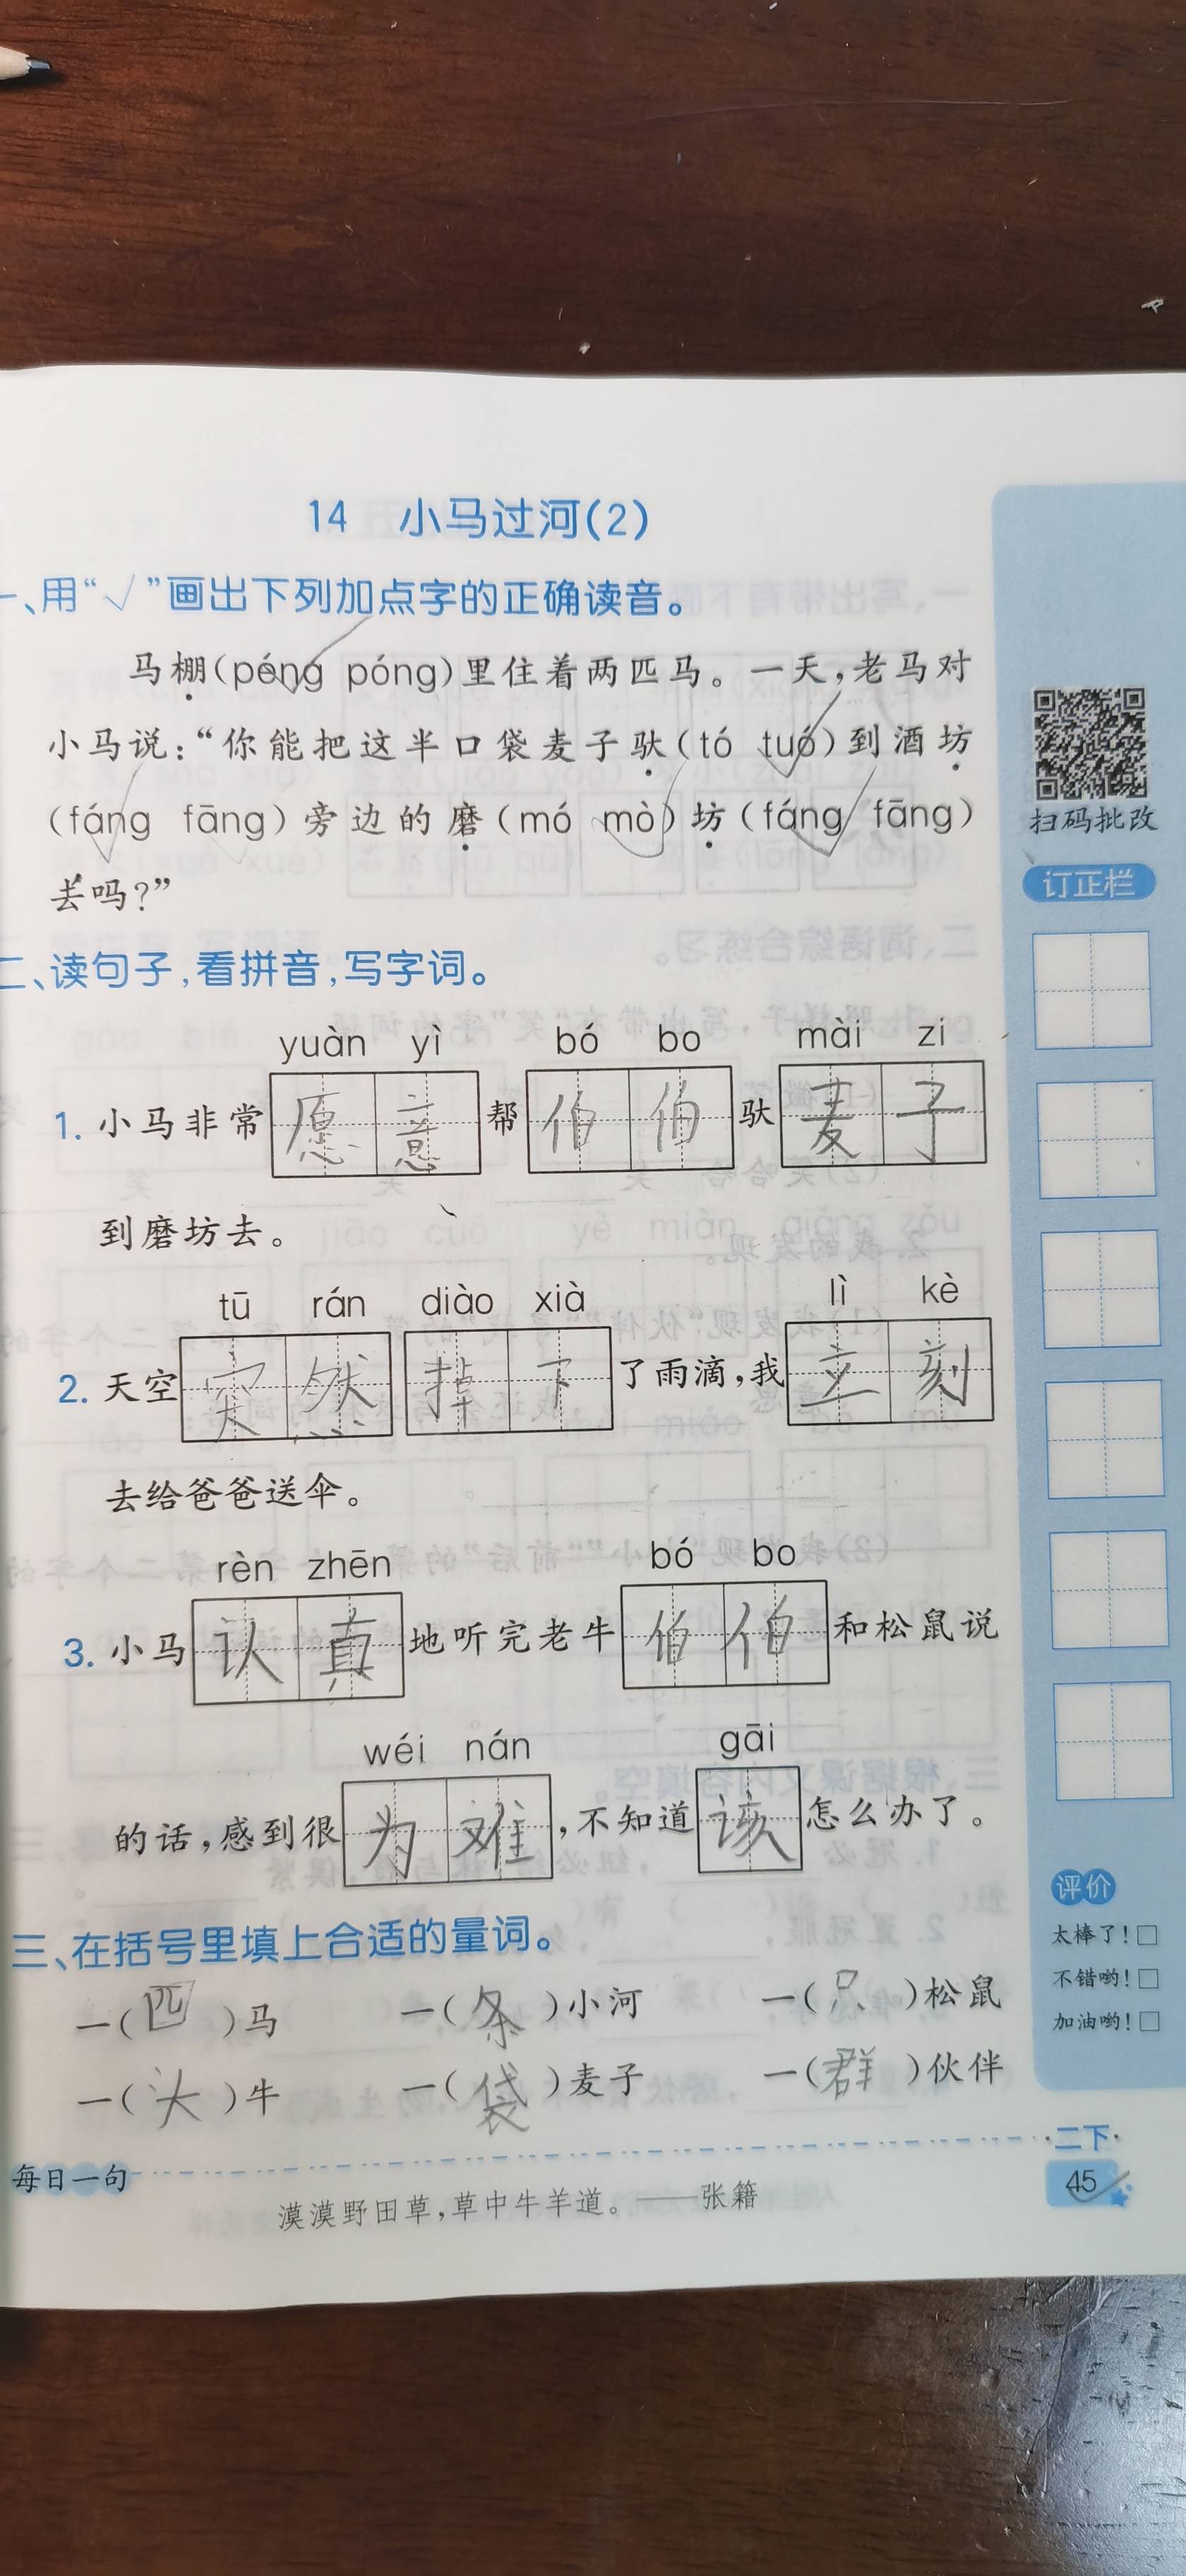 14 小马过河(2)
一、用“√”画出下列加点字的正确读音。
马棚(péng póng)里住着两匹马。一天,老马对
小马说:“你能把这半口袋麦子驮(tó tuó)到酒坊
(fáng fāng)旁边的磨(mó mò)坊(fáng fāng)
去吗?”
二、读句子,看拼音,写字词。
yuàn yì bó bo mài zi
1. 小马非常愿意帮伯伯驮麦子
到磨坊去。
tū rán diào xià lì kè
2. 天空突然掉下了雨滴,我立刻
去给爸爸送伞。
rèn zhēn bó bo
3. 小马认真地听完老牛伯伯和松鼠说
wéi nán gāi
的话,感到很为难,不知道该怎么办了。
三、在括号里填上合适的量词。
一(匹)马 一(条)小河 一(只)松鼠
一(头)牛 一(袋)麦子 一(群)伙伴
每日一句
漠漠野田草,草中牛羊道。——张籍
扫码批改
订正栏
评价
太棒了!□
不错哟!□
加油哟!□
·二下·
45